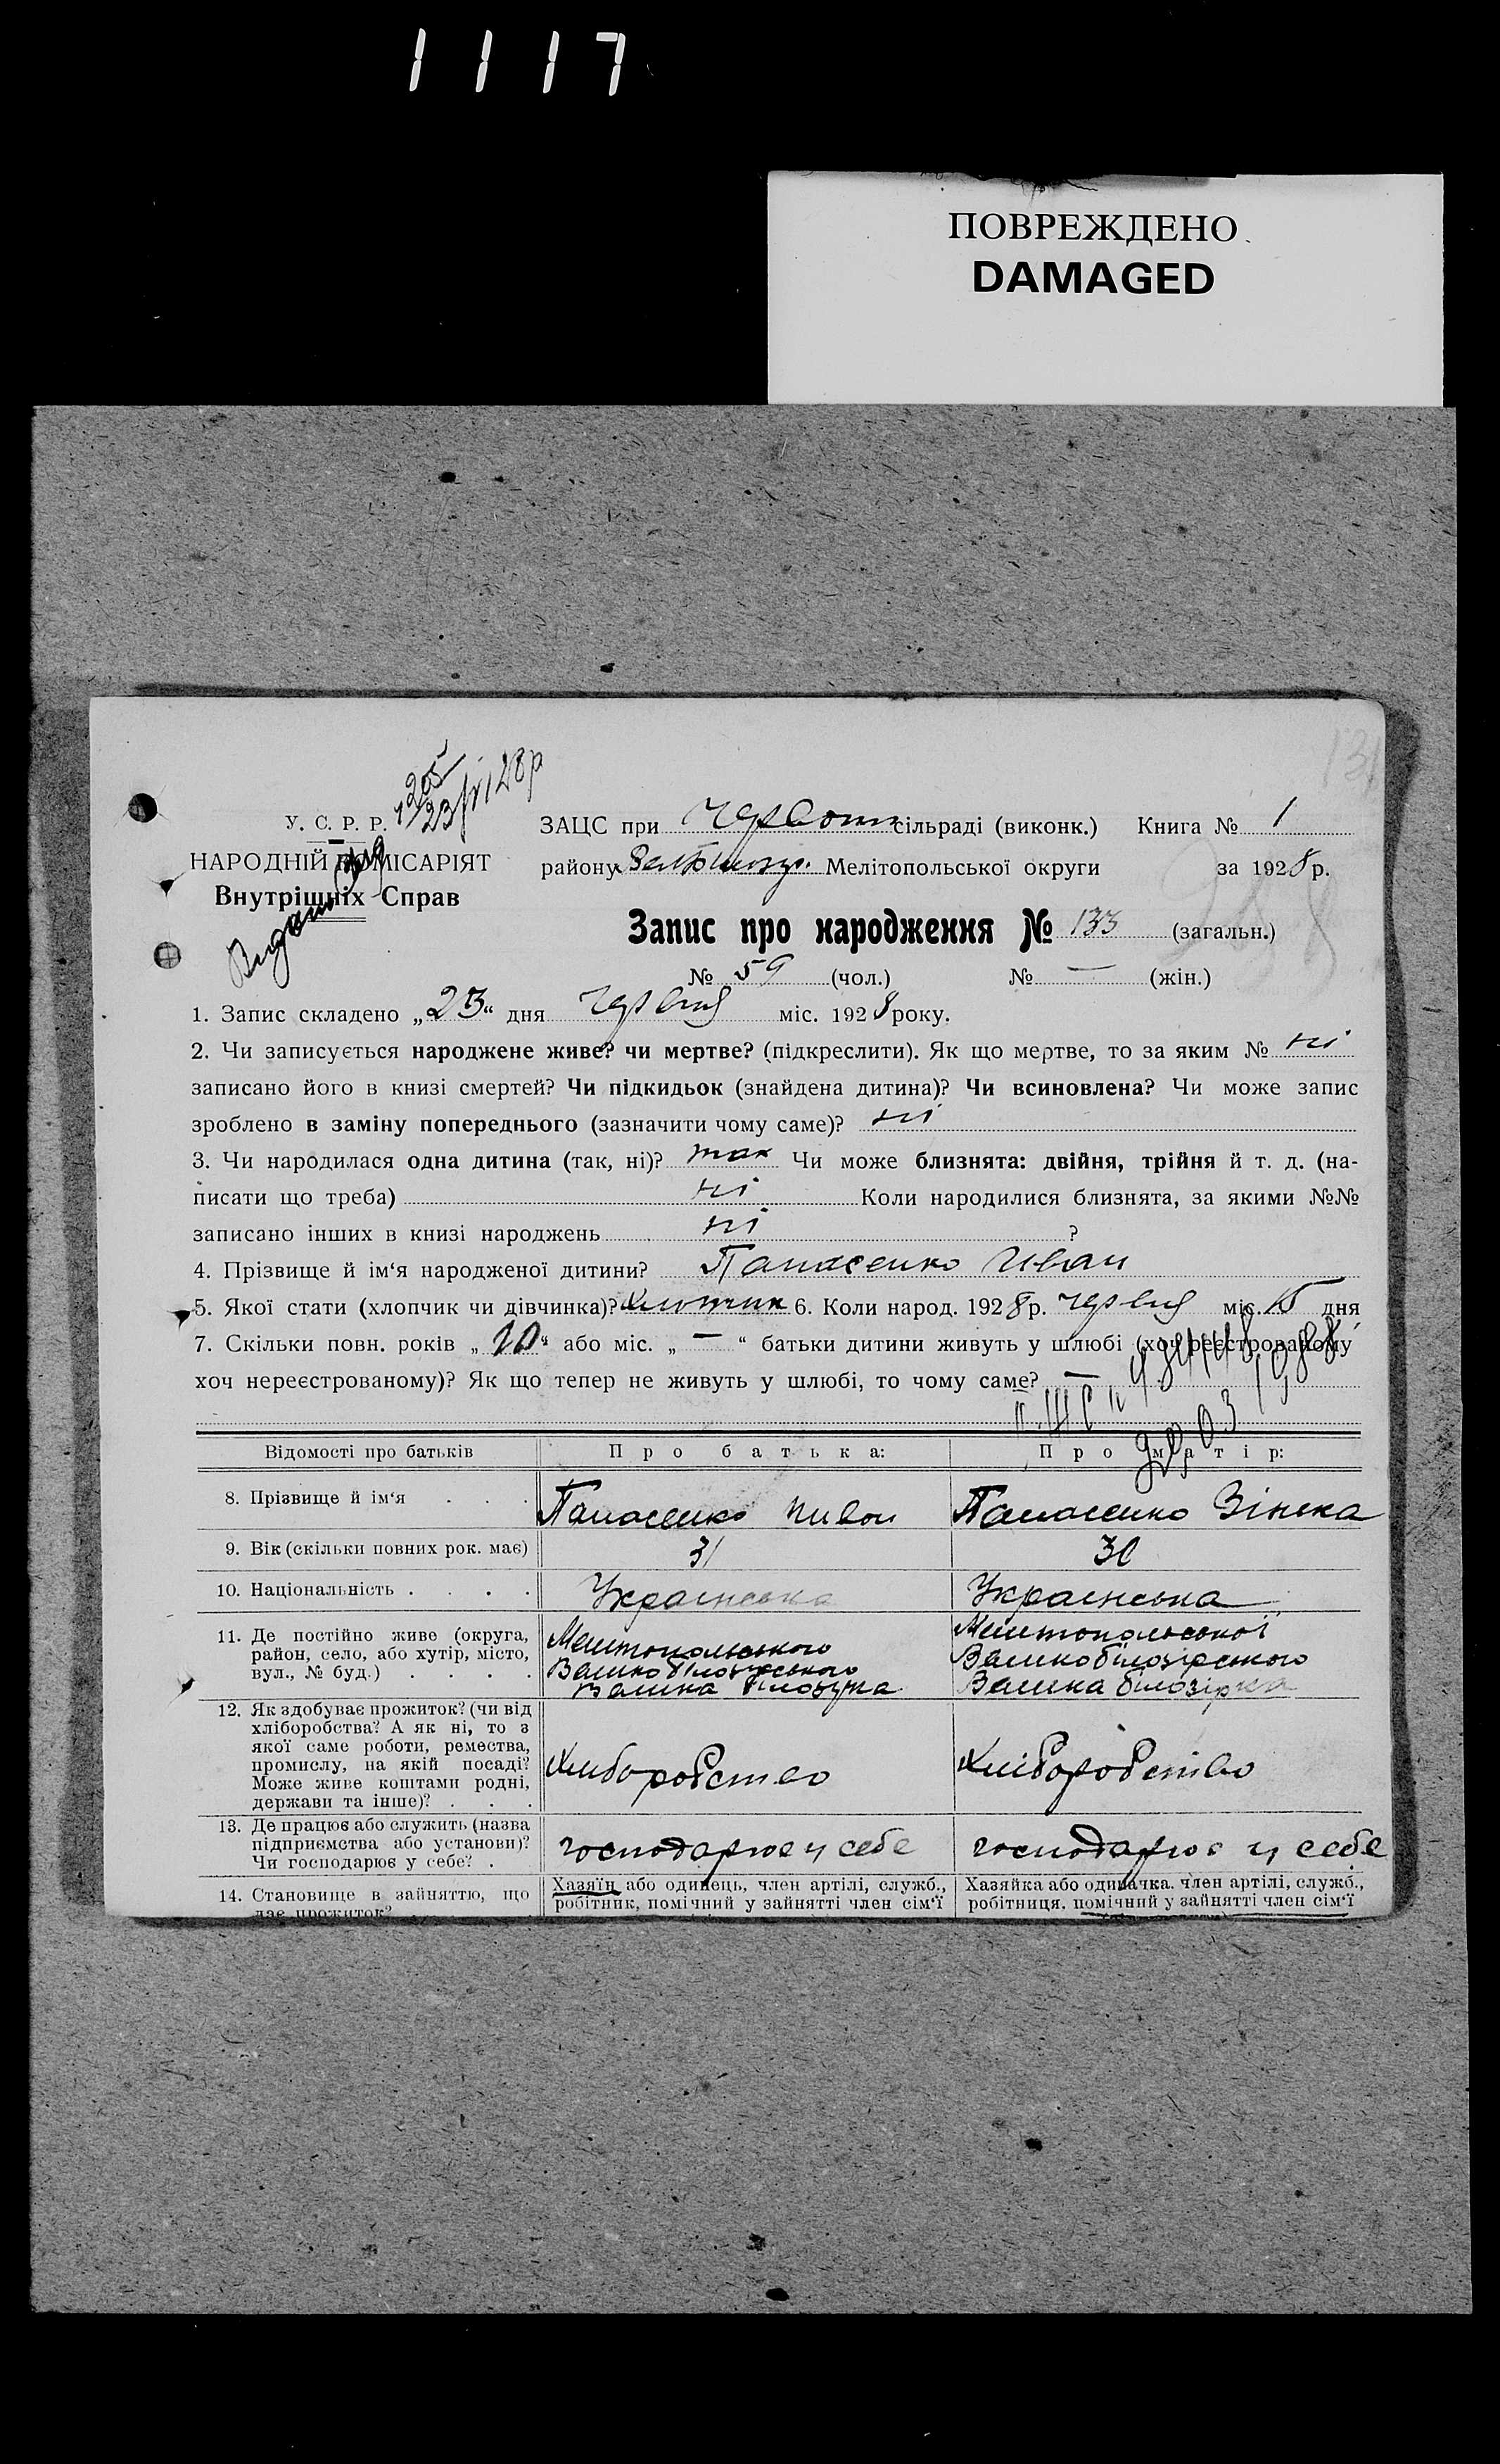 1117
ПОВРЕЖДЕНО
DAMAGED
У. С. Р. Р.
НАРОДНІЙ КОМІСАРІЯТ
Внутрішніх Справ
205
23/VI 28р
ЗАЦС при Червон сільраді (виконк.) Книга № 1
району Мелітопольської округи за 1928 р.
Запис про народження № 133 (загальн.)
№ 59 (чол.) № — (жін.)
1. Запис складено „23“ дня червня міс. 1928 року.
2. Чи записується народжене живе? чи мертве? (підкреслити). Як що мертве, то за яким № ні
записано його в книзі смертей? Чи підкидьок (знайдена дитина)? Чи всиновлена? Чи може запис
зроблено в заміну попереднього (зазначити чому саме)? ні
3. Чи народилася одна дитина (так, ні)? так Чи може близнята: двійня, трійня й т. д. (на-
писати що треба) ні Коли народилися близнята, за якими №№
записано інших в книзі народжень ні ?
4. Прізвище й ім‘я народженої дитини? Панасенко Иван
5. Якої стати (хлопчик чи дівчинка)? Хлопчик 6. Коли народ. 1928 р. червня міс. 15 дня
7. Скільки повн. років „10“ або міс. „—“ батьки дитини живуть у шлюбі (хоч реєстрованому
хоч нереєстрованому)? Як що тепер не живуть у шлюбі, то чому саме? —
Відомості про батьків Про батька: Про матір:
8. Прізвище й ім‘я . . . Панасенко Панасенко Зінька
9. Вік (скільки повних рок. має) 31 30
10. Національність . . . . Українська Українська
11. Де постійно живе (округа,
район, село, або хутір, місто,
вул., № буд.) . . . .
Мелитопольського
Великобілозірського
Велика Білозірка
Мелитопольської
Великобілозірського
Велика білозірка
12. Як здобуває прожиток? (чи від
хліборобства? А як ні, то з
якої саме роботи, ремества,
промислу, на якій посаді?
Може живе коштами родні,
держави та інше)? . . .
Хлиборобство
Хлібороботво
13. Де працює або служить (назва
підприємства або установи)?
Чи господарює у себе? .
господарює у себе
господарює у себе
14. Становище в зайняттю, що
дає прожиток?
Хазяїн або одинець, член артілі, служб.,
робітник, помічний у зайнятті член сім‘ї
Хазяйка або одиначка. член артілі, служб.,
робітниця, помічний у зайнятті член сім‘ї